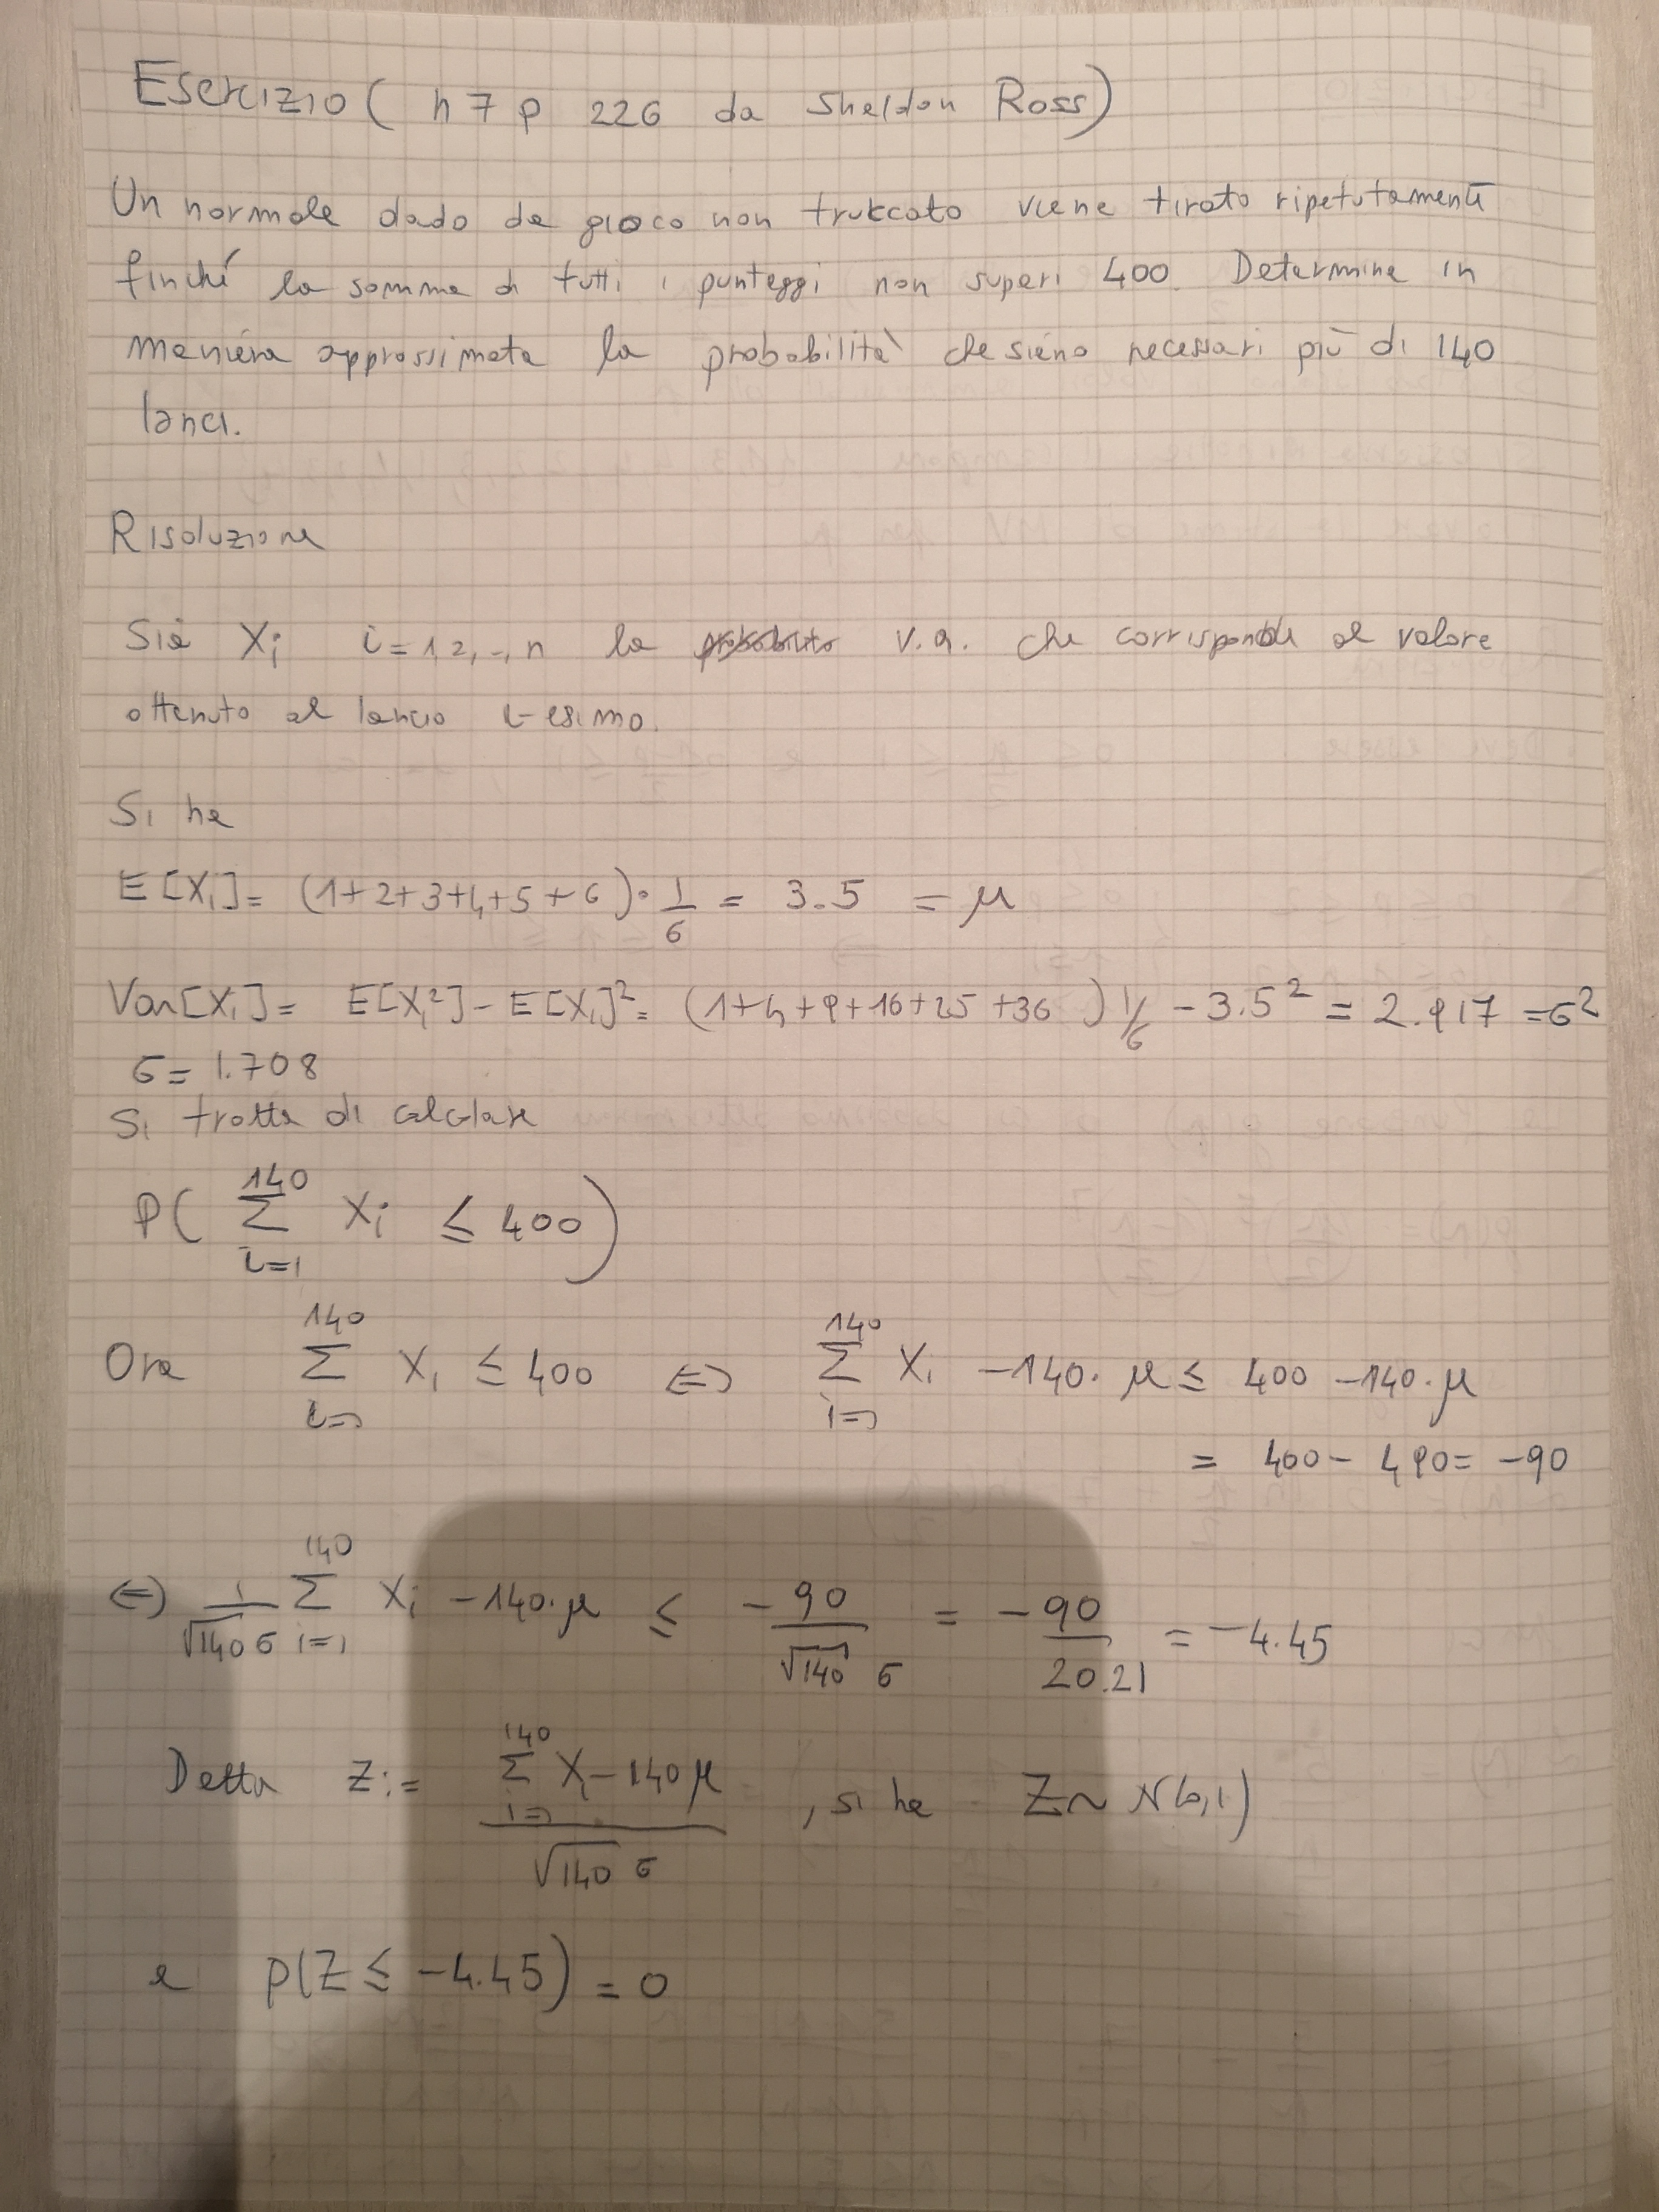 Esercizio ( n 7 p 226 da Sheldon Ross)
Un normale dado da gioco non truccato viene tirato ripetutamente
finché la somma di tutti i punteggi non superi 400. Determina in
maniera approssimata la probabilità che siano necessari più di 140
lanci.
Risoluzione
Sia Xi i=1,2,..,n la probabilità v.a. che corrisponde al valore
ottenuto al lancio i-esimo.
Si ha
E[Xi]= (1+2+3+4+5+6)·1/6 = 3.5 = μ
Var[Xi]= E[Xi²]-E[Xi]²= (1+4+9+16+25+36)1/6 -3.5² = 2.917 =σ²
σ= 1.708
Si tratta di calcolare
P( Σ_{i=1}^{140} Xi ≤ 400)
Ora Σ_{i=1}^{140} Xi ≤ 400 <=> Σ_{i=1}^{140} Xi -140·μ ≤ 400 -140·μ
= 400- 490= -90
<=> 1/(√140 σ) Σ_{i=1}^{140} Xi -140·μ ≤ -90/(√140 σ) = -90/20.21 = -4.45
Detta Z:= (Σ_{i=1}^{140} Xi-140μ)/(√140 σ) , si ha Z~N(0,1)
e P(Z ≤ -4.45) = 0